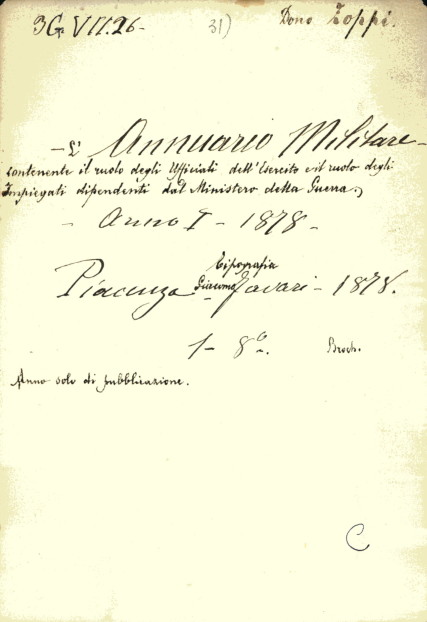 3G. VII. 26 - 31) Dono Zoppi.
- L' Annuario Militare -
contenente il ruolo degli Ufficiali dell'Esercito e il ruolo degli
Impiegati dipendenti dal Ministero della Guerra.)
- Anno I - 1878 -
Tipografia
Piacenza - Giacomo Tavari - 1878.
1 - 8º. Broch.
Anno solo di pubblicazione.
C